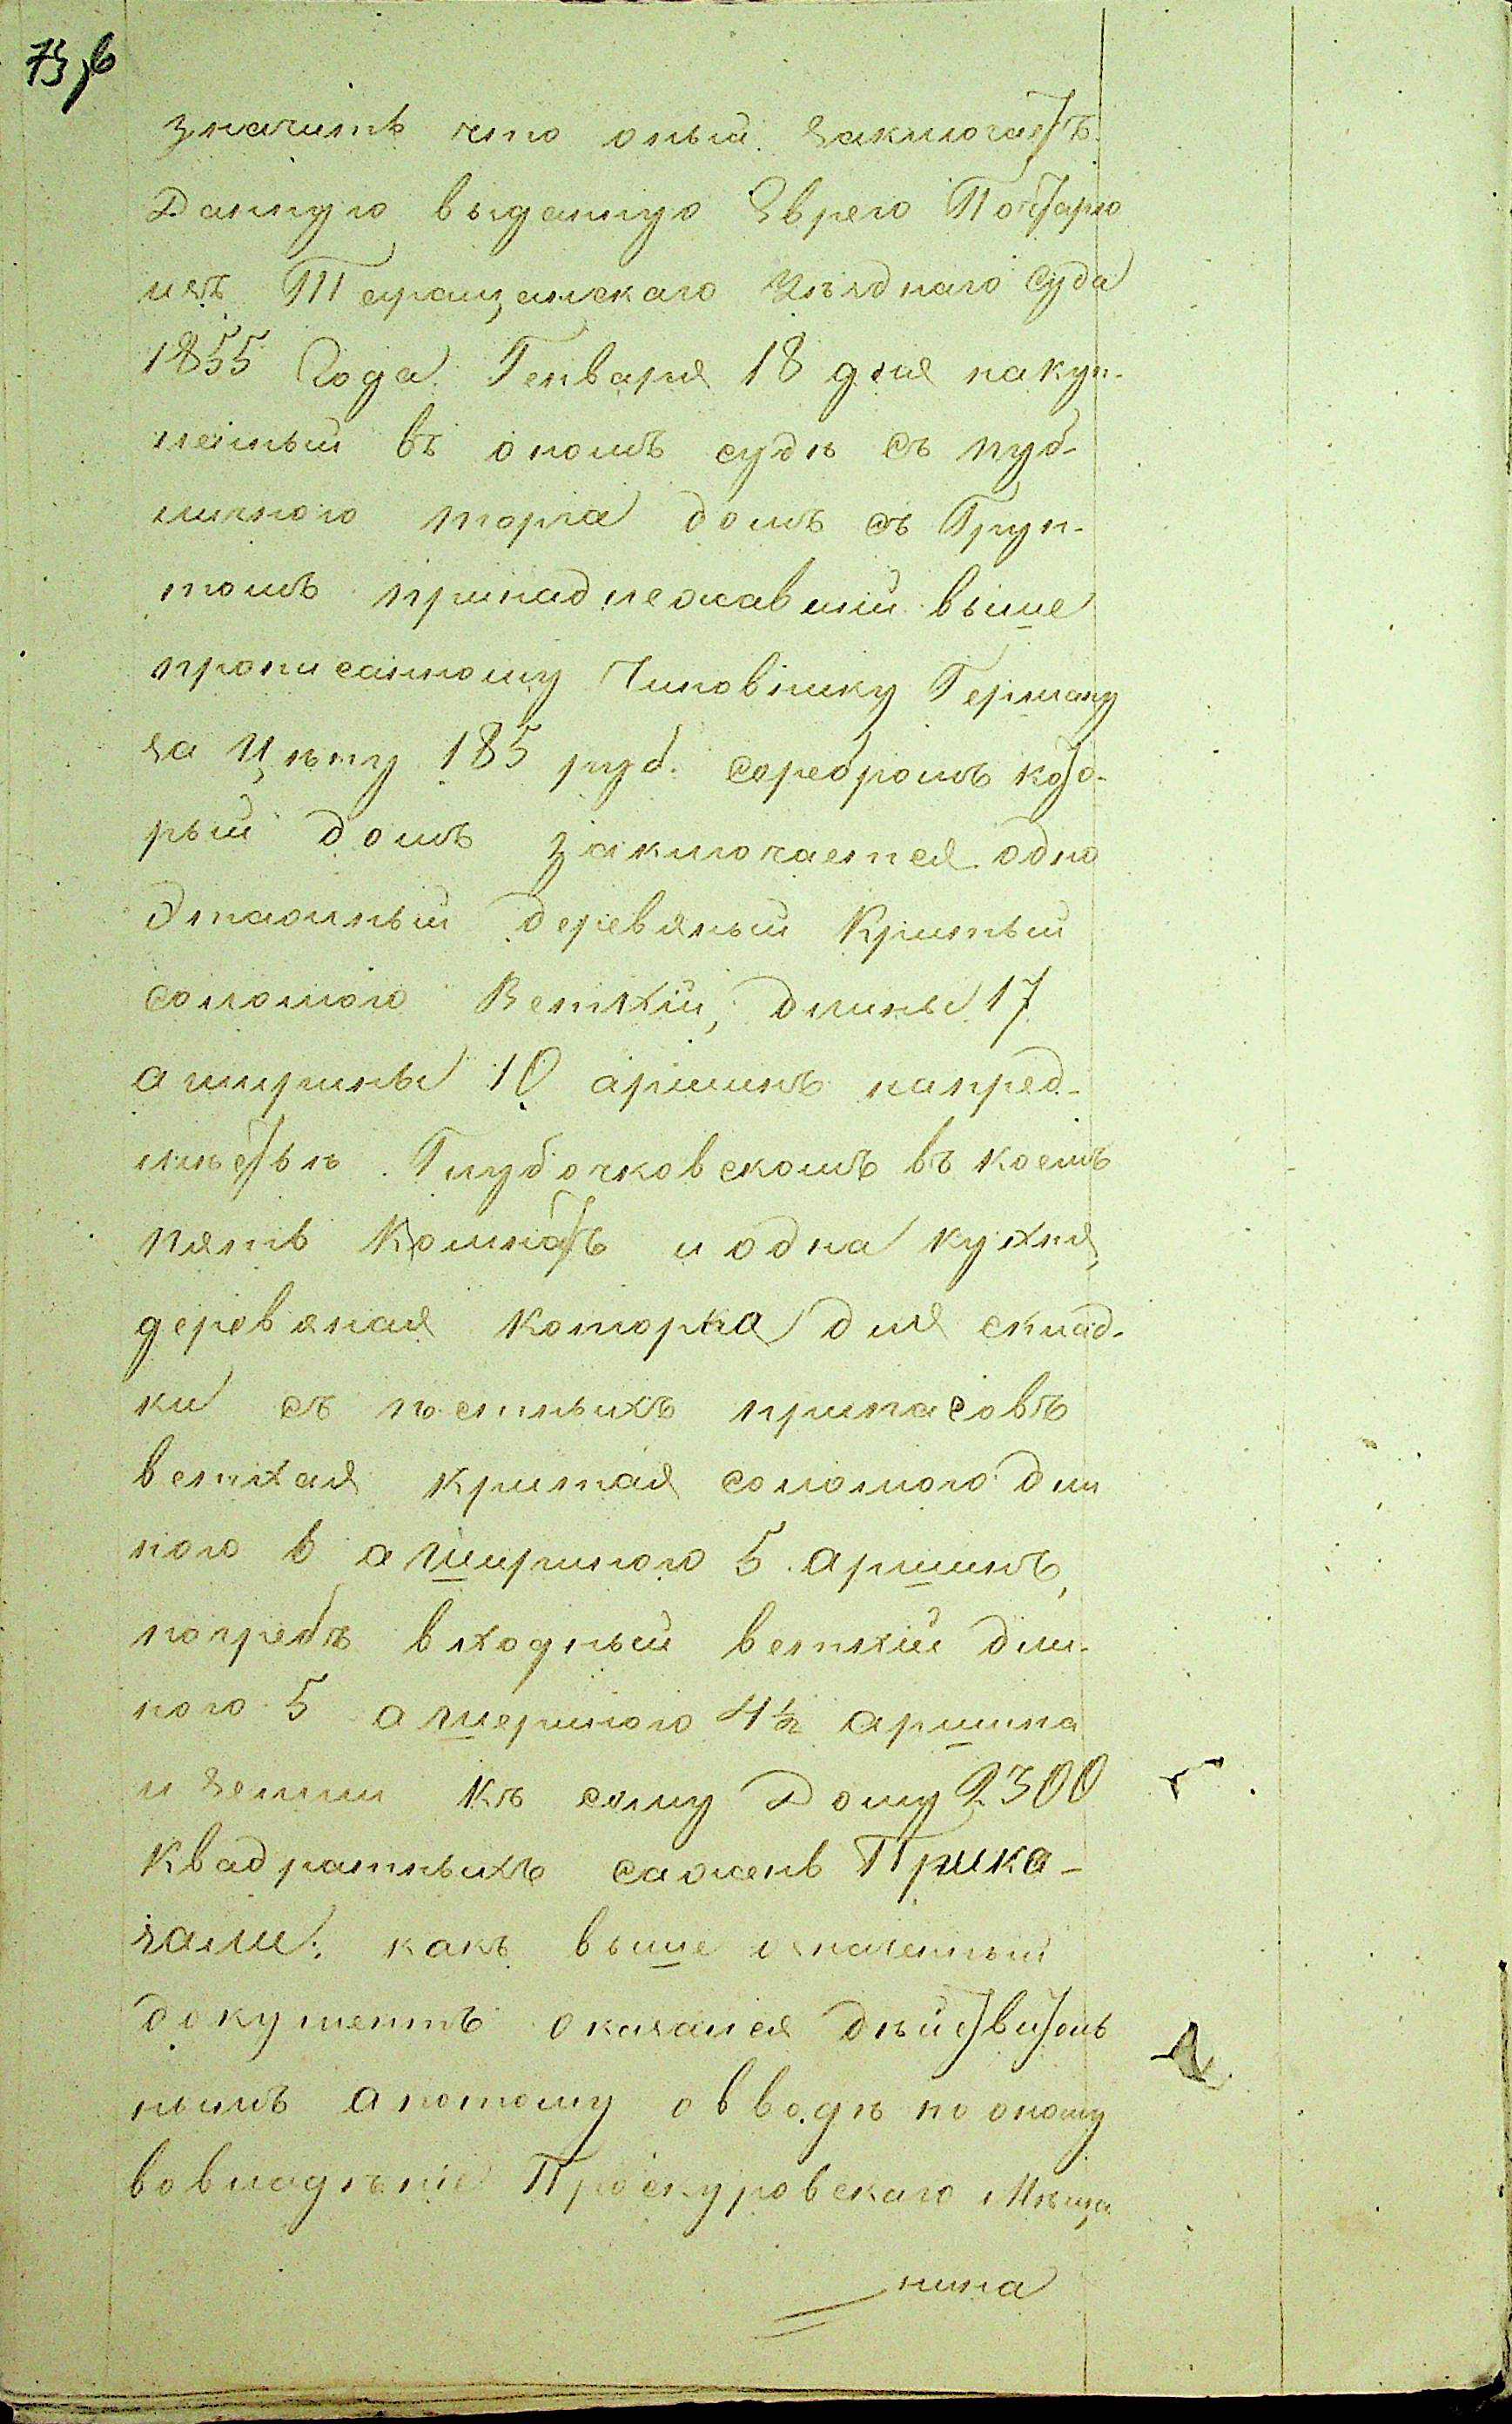 значитъ что оный заключаетъ
Данную выданную Еврею Почтарю
изъ Таращанскаго Уѣзднаго Суда
1855 Года Генваря 18 дня на куп-
леный въ ономъ судѣ съ пуб-
личного торга домъ съ Грун-
томъ принадлежавший выше
прописанному Чиновнику Герману
за Цѣну 185 руб. серебромъ кото-
рый домъ заключается одно
Этажный деревяный Критый
соломою Ветхій, длины 17
а ширины 10 аршинъ на пред-
мѣстьѣ Глубочковскомъ въ коемъ
пять Комнатъ и одна кухня,
деревяная коморка для склад-
ки съѣстныхъ припасовъ
ветхая критая соломою дли
ною 6 а шириною 5 аршинъ,
погребъ входный ветхий дли-
ною 5 а шериною 4½ аршина
и земли къ сему Дому 2300
Квадратныхъ сажень Прика-
зали: какъ выше означенный
документъ оказался дѣйствитель
нымъ а потому о вводѣ по оному
во владѣніе Проскуровскаго Мѣща
нина